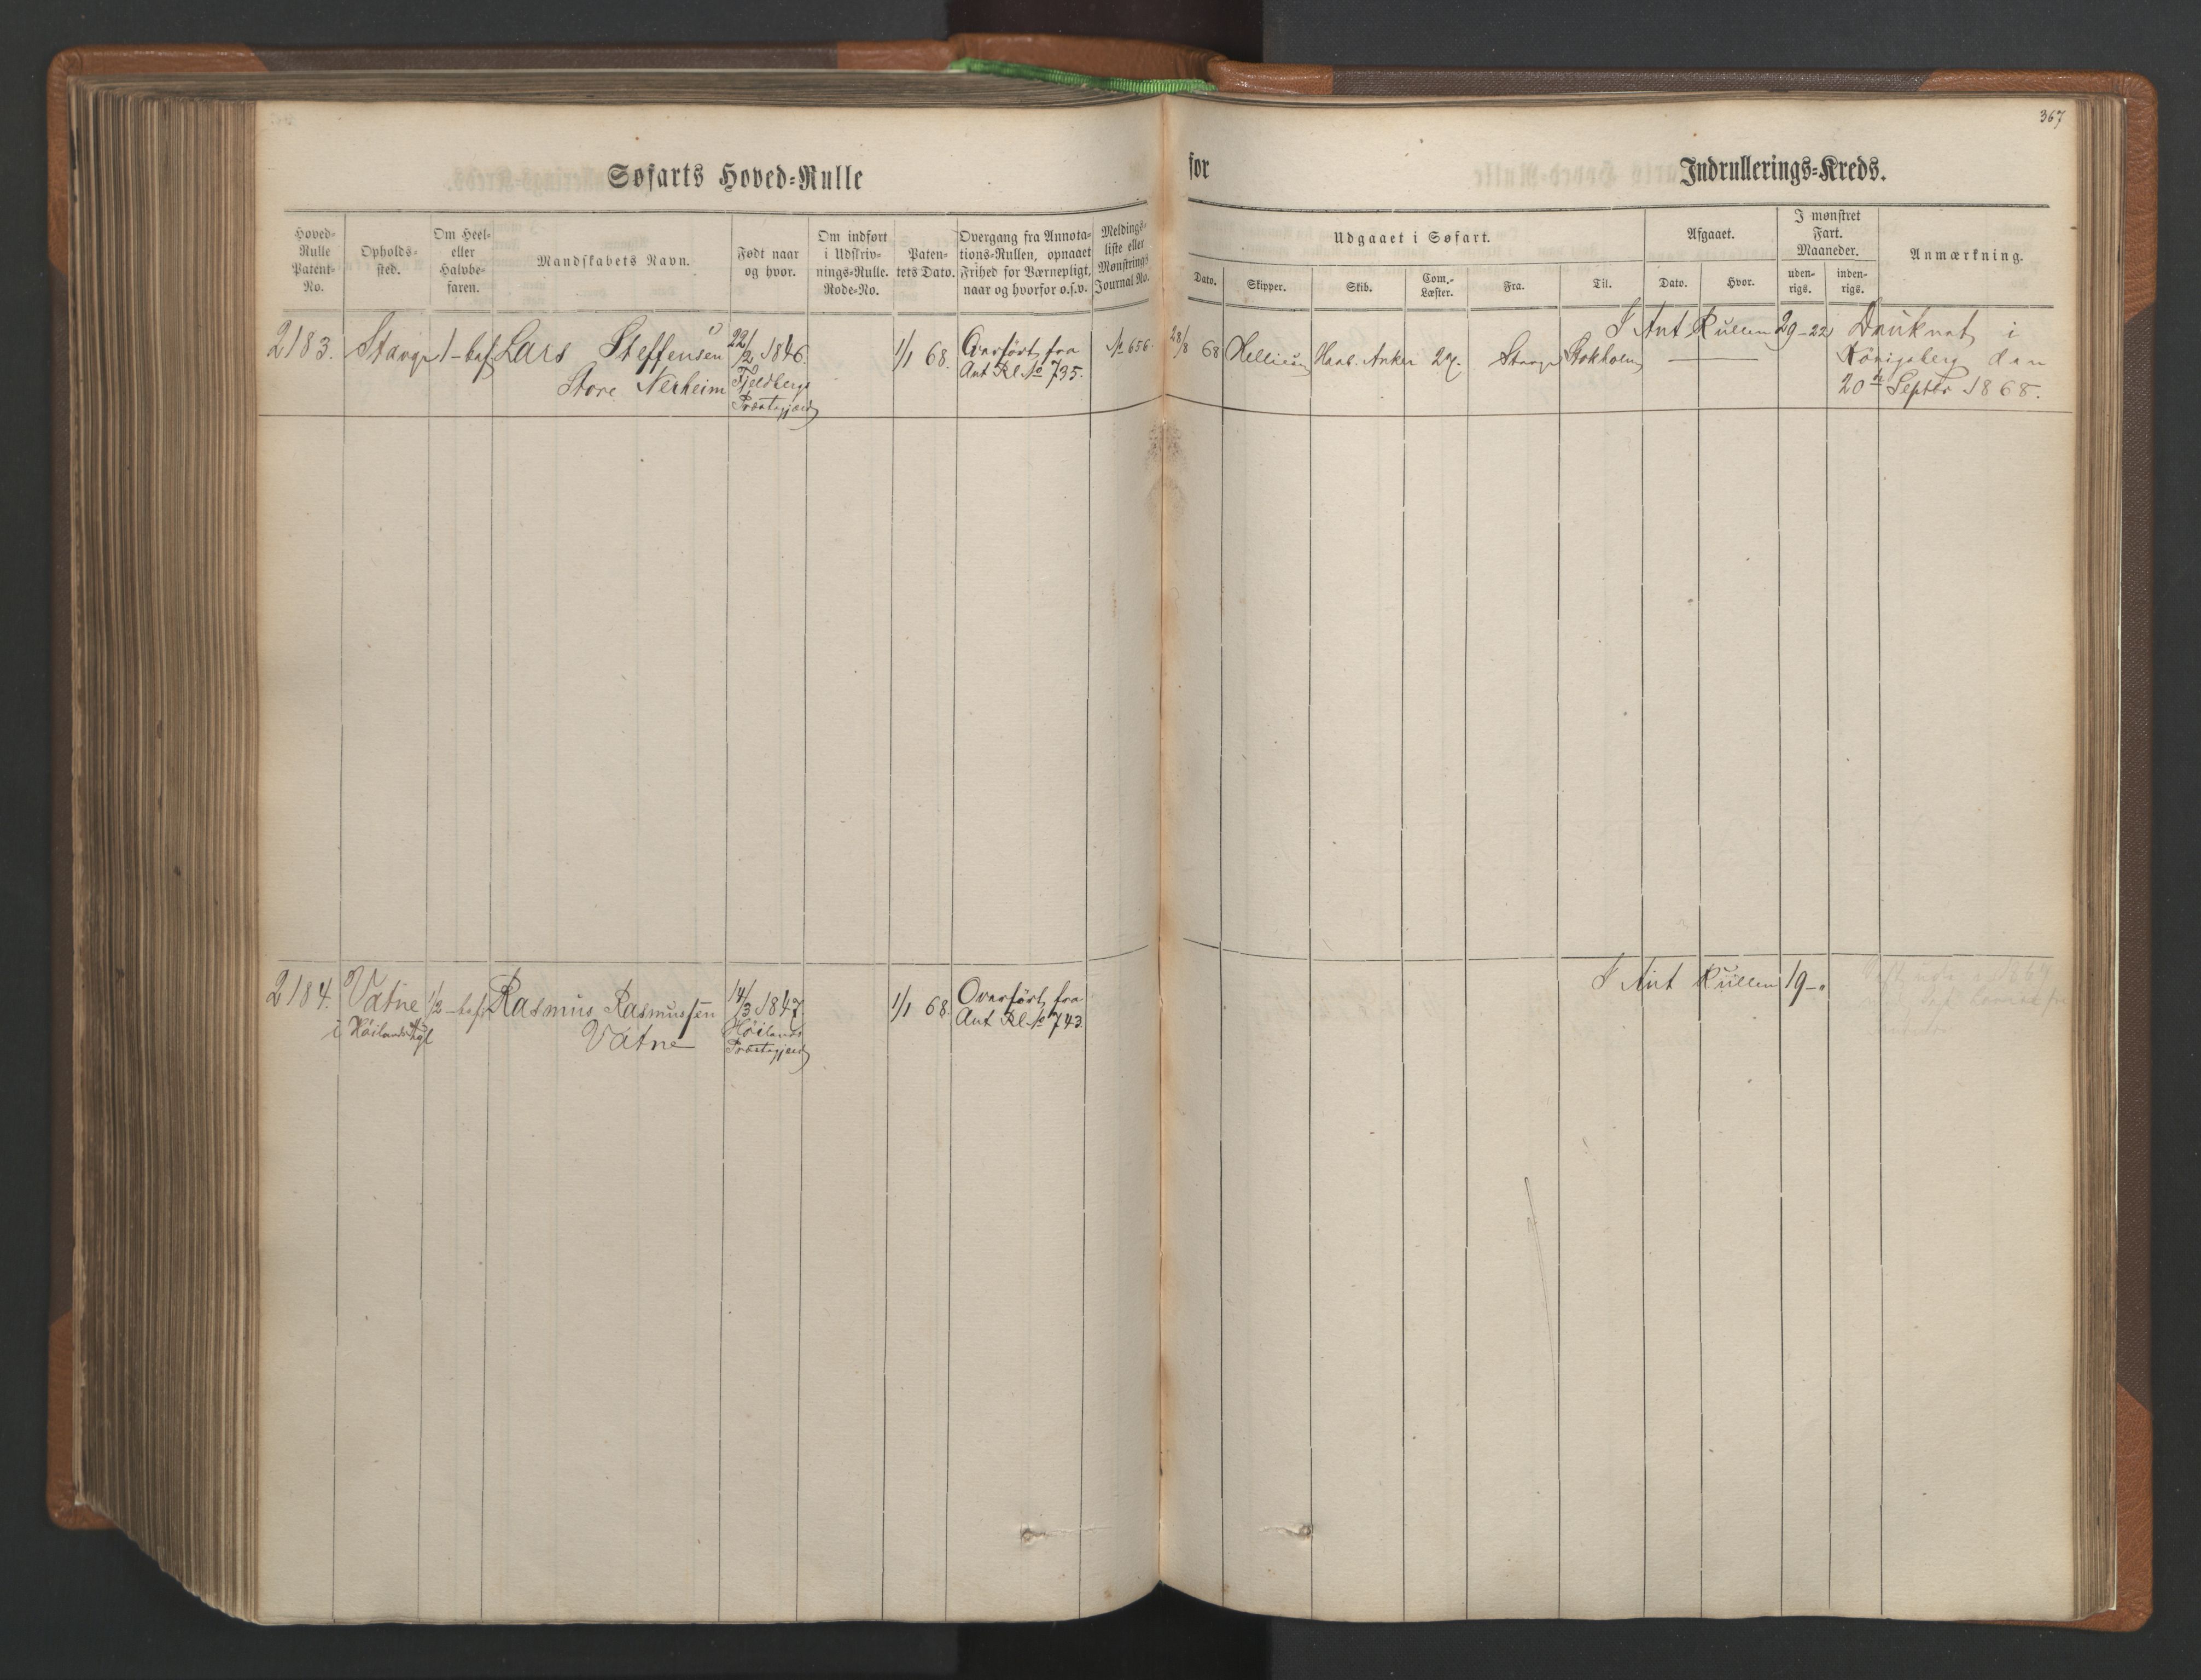 367
Søfarts Hoved-Rulle
for
Indrullerings-Kreds.
Hoved-Rulle Patent-No.
Opholds-sted.
Om Heel- eller Halvbe-faren.
Mandskabets Navn.
Født naar og hvor.
Om indført i Udskriv-nings-Rulle. Rode-No.
Paten-tets Dato.
Overgang fra Annota-tions-Rullen, opnaaet Frihed for Værnepligt, naar og hvorfor o.s.v.
Meldings-liste eller Mønstrings Journal No.
Udgaaet i Søfart.
Dato.
Skipper.
Skib.
Com.-Læster.
Fra.
Til.
Afgaaet.
Dato.
Hvor.
I mønstret Fart. Maaneder.
uden-rigs.
inden-rigs.
Anmærkning.
2183. Stavgr 1-bef Lars Steffensen 22/2 1846. 1/1 68. Overført fra № 656. 28/8 68 Haab. Anker 29. Stavgr Stokholm I Ant Rullen 29-22 Druknet i
Store Nerheim Fjeldbergs Ant Rl. № 735. Königsberg den
Præstegjæld 20de Septbr 1868.
2184. Vatne 1/2-bef Rasmus Rasmussen 14/3 1847. 1/1 68. Overført fra I Ant Rullen 19-"
i Høilands Vatne Høilands Ant Rl. № 743.
Præstegjæld